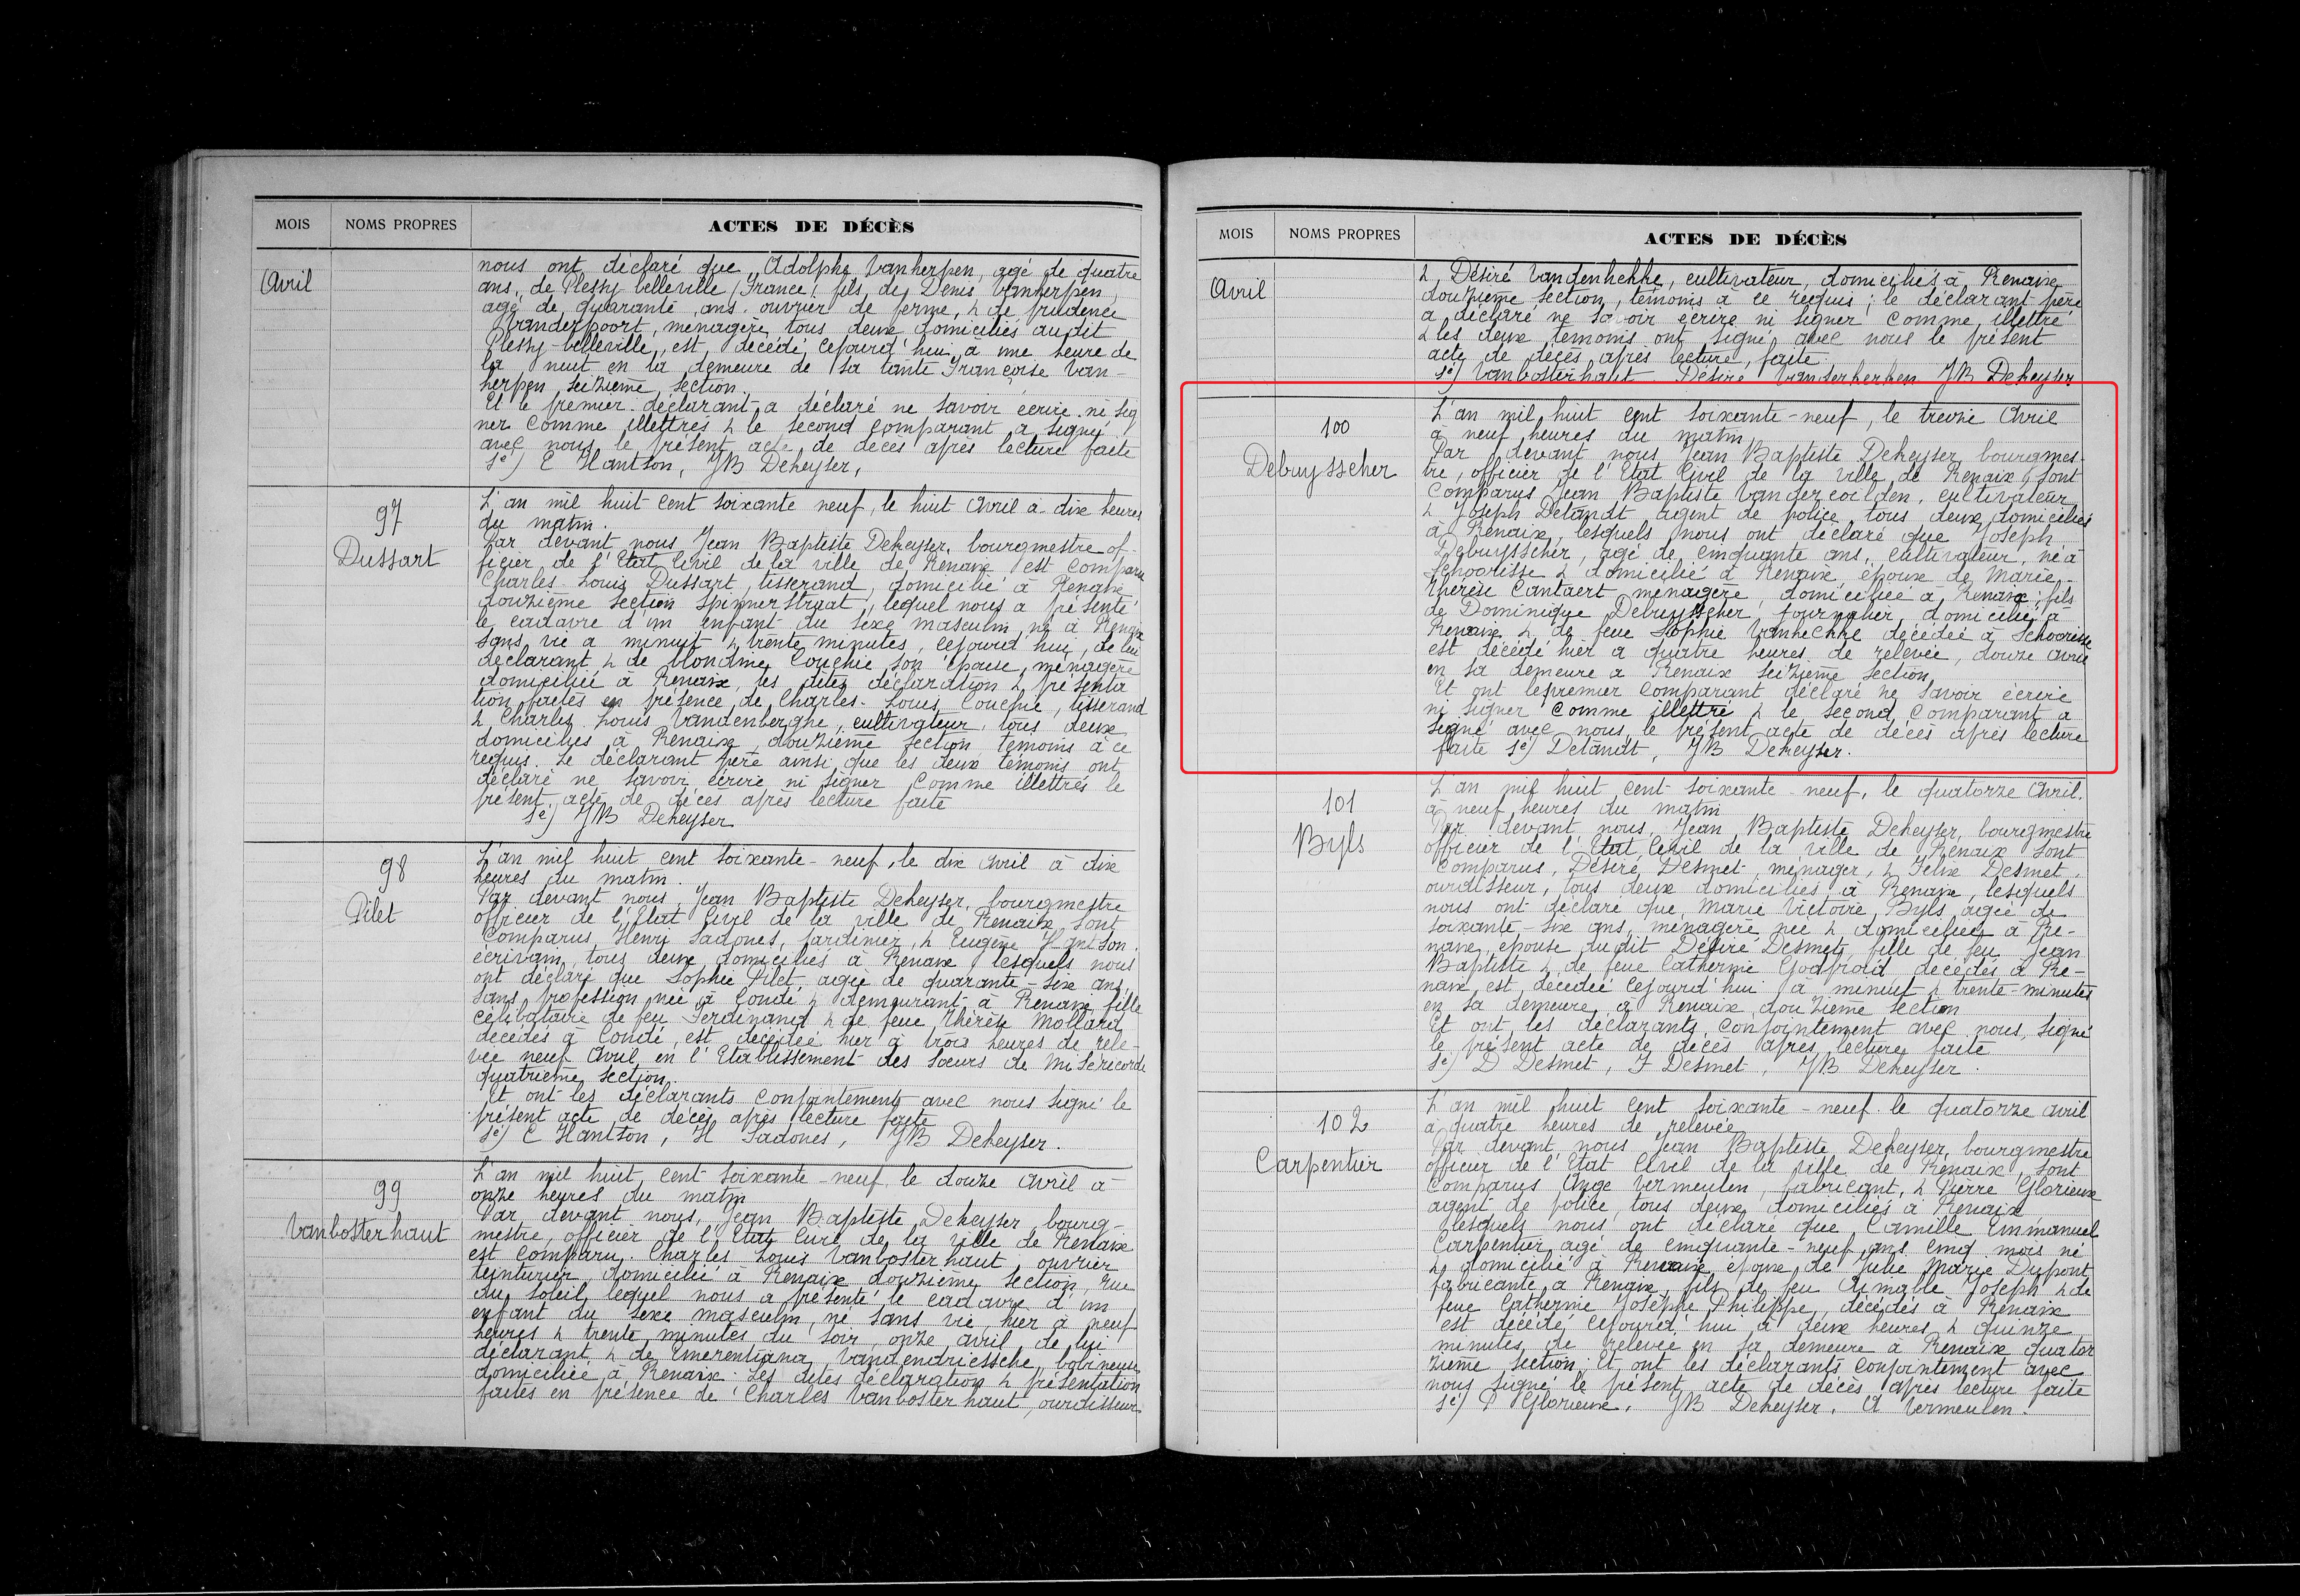 MOIS NOMS PROPRES ACTES DE DÉCÈS
Avril
nous ont déclaré que Adolphe Vanherpen, agé de quatre
ans, de Plessy-belleville (France) fils de Denis Vanherpen,
agé de quarante ans ouvrier de ferme, & de prudence
Vanderpoort, menagère, tous deux domiciliés audit
Plessy-belleville, est décédé cejourd'hui à une heure de
la nuit en la demeure de sa tante Françoise Van-
herpen seizième section.
Et le premier déclarant a déclaré ne savoir écrire ni sig
ner comme illettrés & le second comparant a signé
avec nous le présent acte de décès après lecture faite
sé) E Hantson, JB Dekeyser,
97
Dussart
L'an mil huit cent soixante neuf, le huit Avril à dix heures
du matin.
Par devant nous Jean Baptiste Dekeyser, bourgmestre of-
ficier de l'Etat Civil de la ville de Renaix est comparu
Charles-Louis Dussart, tisserand, domicilié à Renaix
douzième section Spinnerstraat, lequel nous a présenté
le cadavre d'un enfant du sexe masculin né à Renaix
sans vie à minuit & trente minutes, cejourd'hui, de lui
déclarant & de Blondine Couchie, son épouse, ménagère
domiciliée à Renaix, les dites déclaration & présenta
tion faites en présence de Charles-Louis Couchie, tisserand
& Charles Louis Vandenberghe, cultivateur, tous deux
domiciliés à Renaix douzième section témoins à ce
requis. Le déclarant père ainsi que les deux témoins ont
déclaré ne savoir écrire ni signer comme illettrés le
présent acte de décès après lecture faite
sé) JB Dekeyser
98
Pilet
L'an mil huit cent soixante-neuf, le dix avril à dix
heures du matin.
Par devant nous, Jean Baptiste Dekeyser, bourgmestre
officier de l'Etat Civil de la ville de Renaix sont
Comparus Henri Sadones, jardinier, & Eugène Hantson
écrivain, tous deux domiciliés à Renaix lesquels nous
ont déclaré que Sophie Pilet, agée de quarante-six ans,
sans profession née à Condé & demeurant à Renaix, fille
célibataire de feu Ferdinand & de feue Thérèse Mollard
décédés à Condé, est décédée hier à trois heures de rele-
vée neuf Avril en l'Etablissement des soeurs de Miséricorde
quatrième section.
Et ont les déclarants conjointements avec nous signé le
présent acte de décès après lecture faite
sé) E Hantson, H Sadones, JB Dekeyser.
99
Vanbosterhaut
L'an mil huit cent soixante-neuf le douze avril à
onze heures du matin
Par devant nous, Jean Baptiste Dekeyser bourg-
mestre, officier de l'Etat Civil de la ville de Renaix
est comparu Charles Louis Vanbosterhaut, ouvrier
teinturier, domicilié à Renaix douzième section, rue
du Soleil, lequel nous a présenté le cadavre d'un
enfant du sexe masculin, né sans vie, hier à neuf
heures & trente minutes du soir, onze avril de lui
déclarant & de Emerentiana Vandendriessche, bobineuse,
domiciliée à Renaix. Les dites déclaration & présentation
faites en présence de Charles Vanbosterhaut, ourdisseur
MOIS NOMS PROPRES ACTES DE DÉCÈS
Avril
& Désiré Vandenhekke, cultivateur, domiciliés à Renaix
douzième section, témoins à ce requis; le déclarant père
a déclaré ne savoir écrire ni signer comme illettré
& les deux témoins ont signé avec nous le présent
acte de décès après lecture faite.
sé) Vanbosterhaut Désiré JB Dekeyser
100
Debuysscher
L'an mil huit cent soixante-neuf, le treize Avril
à neuf heures du matin
Par devant nous Jean Baptiste Dekeyser bourgmes-
tre, officier de l'Etat Civil de la ville de Renaix sont
Comparus Jean Baptiste Vandercoilden, cultivateur
& Joseph Detandt agent de police tous deux domiciliés
à Renaix, lesquels nous ont déclaré que Joseph
Debuysscher, agé de cinquante ans, cultivateur, né à
Schoorisse & domicilié à Renaix, époux de Marie-
Thérèse Cantaert ménagère, domiciliée à Renaix; fils
de Dominique Debuysscher journalier, domicilié à
Renaix & de feue Sophie Vanhecke décédée à Schoorisse
est décédé hier à quatre heures de relevée, douze avril
en sa demeure à Renaix seizième section
Et ont le premier comparant déclaré ne savoir écrire
ni signer comme illettré & le second comparant a
signé avec nous le présent acte de décès après lecture
faite sé) Detandt, JB Dekeyser.
101
Byls
L'an mil huit cent soixante-neuf, le quatorze Avril.
à neuf heures du matin
Par devant nous, Jean Baptiste Dekeyser, bourgmestre
officier de l'Etat Civil de la ville de Renaix sont
Comparus, Désiré Desmet, ménager, & Felix Desmet,
ourdisseur, tous deux domiciliés à Renaix, lesquels
nous ont déclaré que, Marie Victoire Byls agée de
soixante-six ans, ménagère née & domiciliée à Re-
naix, épouse du dit Désiré Desmet, fille de feu Jean
Baptiste & de feue Catherine Godfroid décédés à Re-
naix, est décédée cejourd'hui à minuit & trente-minutes
en sa demeure à Renaix douzième section
Et ont les déclarants conjointement avec nous, signé
le présent acte de décès après lecture faite
sé) D Desmet, F Desmet, JB Dekeyser.
102
Carpentier
L'an mil huit cent soixante-neuf le quatorze avril
à quatre heures de relevée
Par devant nous Jean Baptiste Dekeyser, bourgmestre
officier de l'Etat Civil de la ville de Renaix, sont
Comparus Ange Vermeulen, fabricant, & Pierre Glorieux
agent de police, tous deux domiciliés à Renaix
lesquels nous ont déclaré que Camille Emmanuel
Carpentier agé de cinquante-neuf ans cinq mois né
& domicilié à Renaix époux de Julie Marie Dupont
fabricante à Renaix, fils de feu Aimable Joseph & de
feue Catherine Josèphe Philippe, décédés à Renaix
est décédé cejourd'hui à deux heures & quinze
minutes de relevée en sa demeure à Renaix quator
zième section; Et ont les déclarants conjointement avec
nous signé le présent acte de décès après lecture faite
sé) P Glorieux, JB Dekeyser, A Vermeulen.